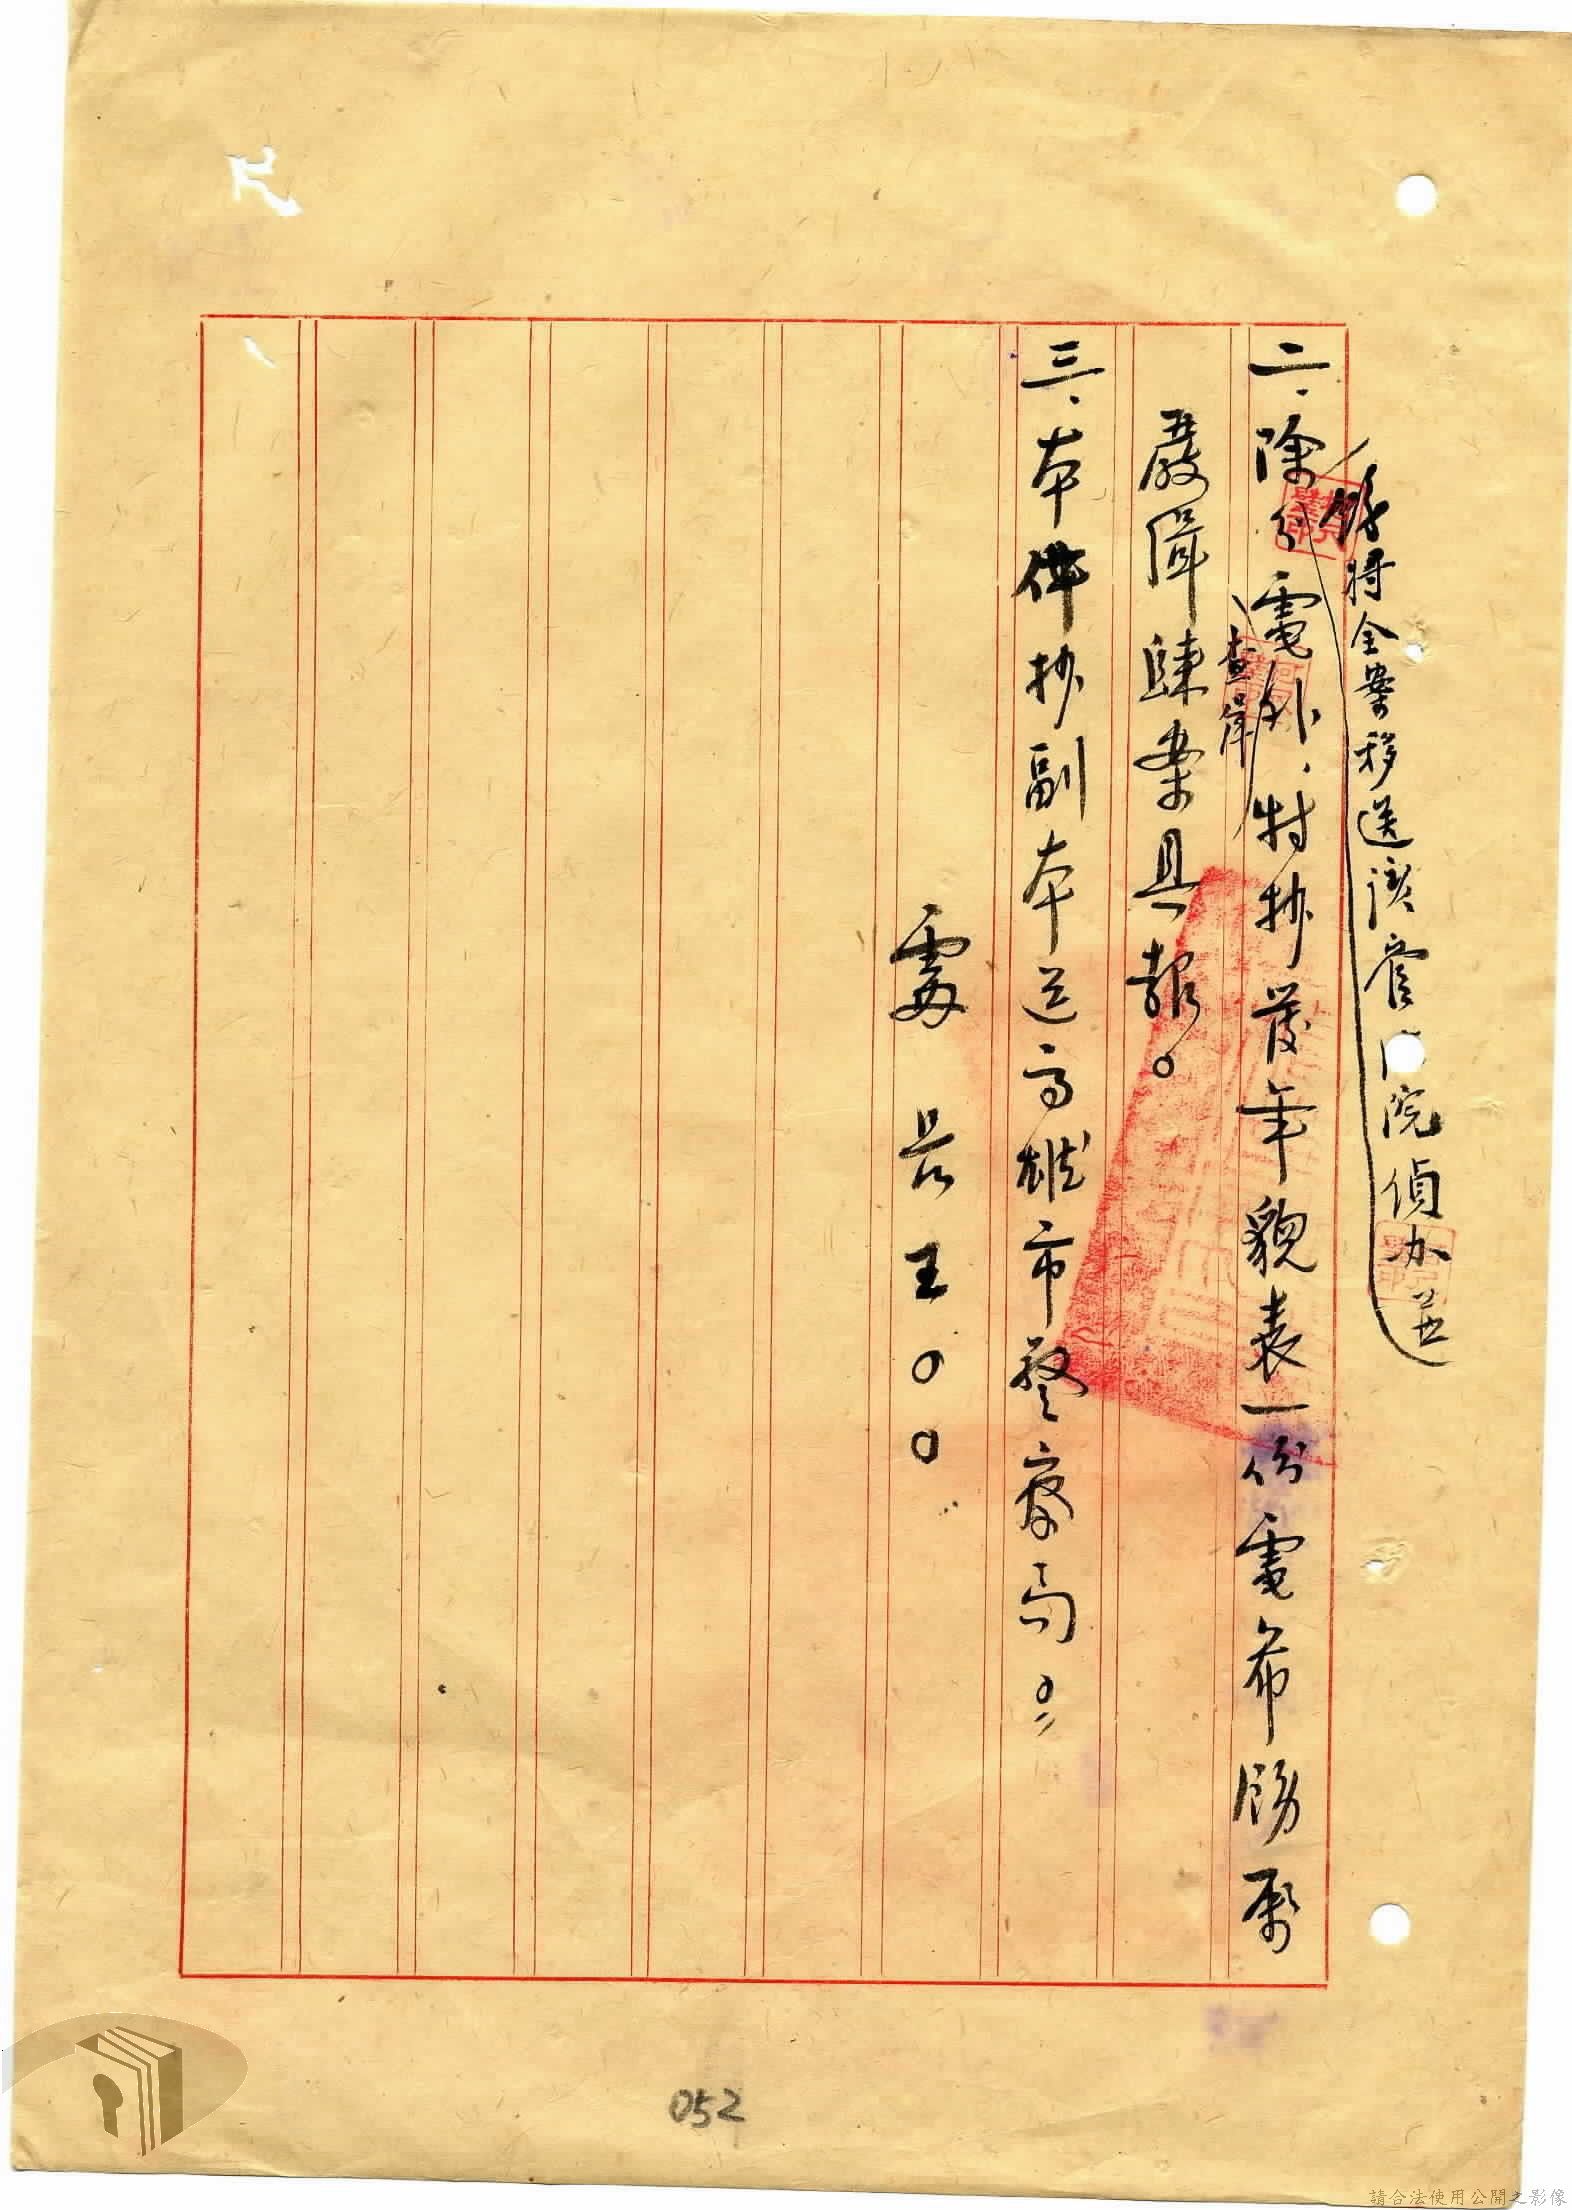 飭將全案移送該管 院偵办並
二、除分電外、特抄發年貌表一份電希飭屬
查緝
嚴緝歸案具報。
三、本件抄副本送高雄市警察局。
處長王〇〇
052
請合法使用公開之影像